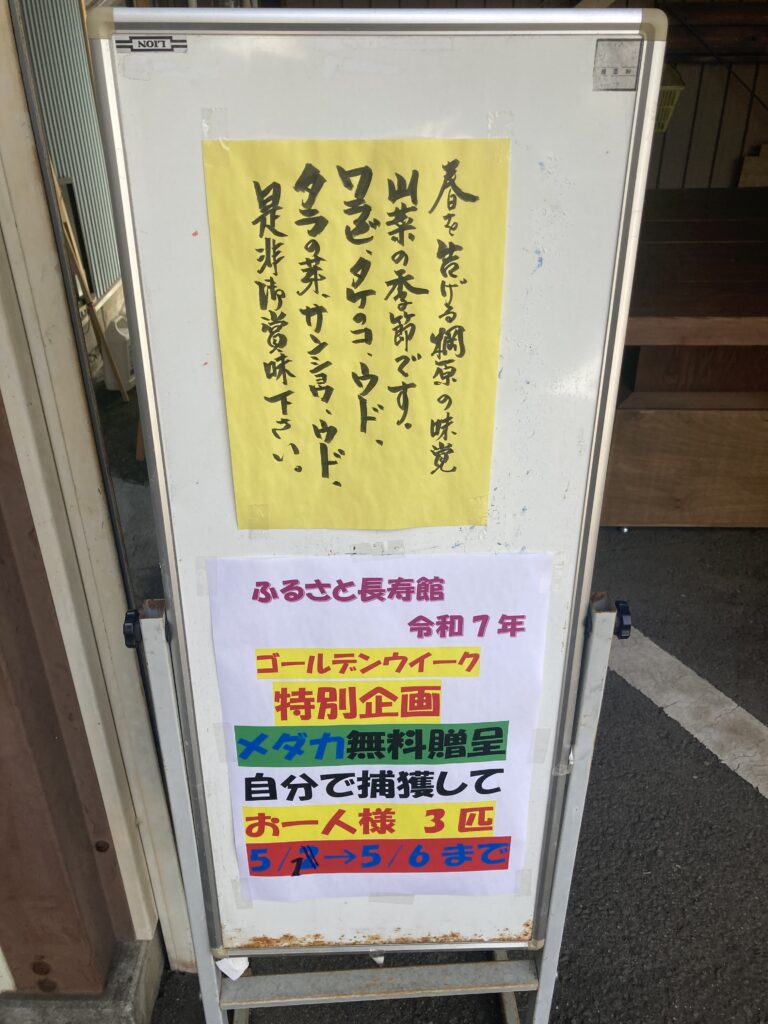 LION
春を告げる梛原の味覚
山菜の季節です。
ワラビ、タケノコ、ウド、
タラの芽、サンショウ、ウド、
是非御賞味下さい。
ふるさと長寿館
令和7年
ゴールデンウイーク
特別企画
メダカ無料贈呈
自分で捕獲して
お一人様 3匹
5/1→5/6まで